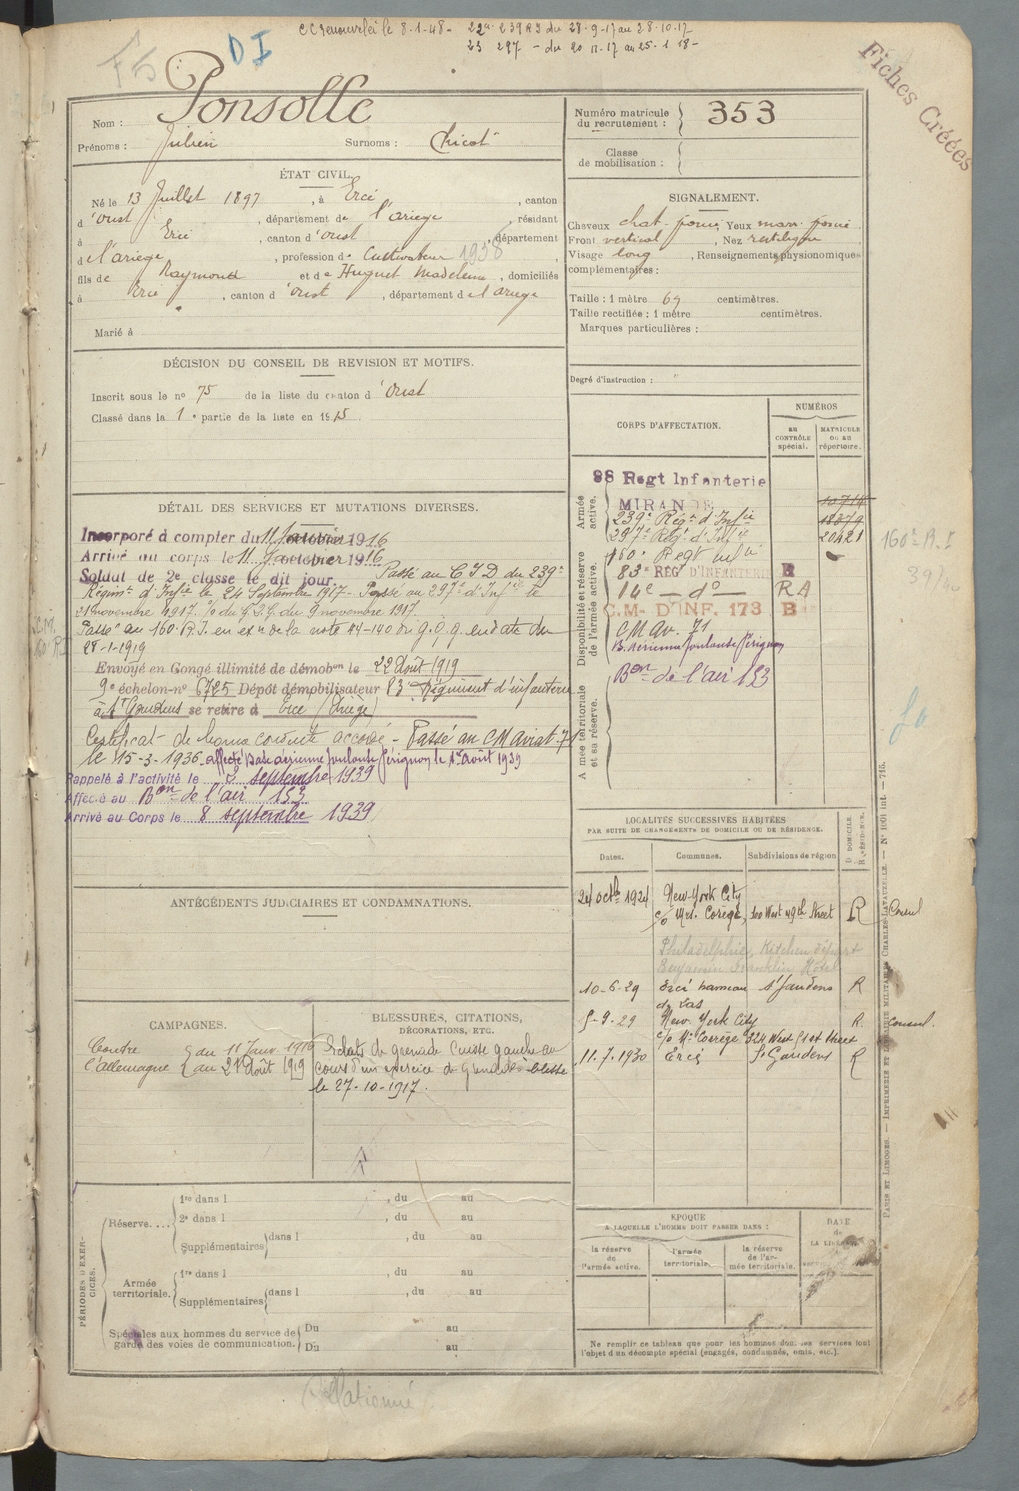 CC renouvelé le 8-1-48- 22e 239 RI du 28-9-17 au 28.10.17
23 297 - du 20 11-17 au 25-1-18-
F5 DI
Fiches Créées
Nom : Ponsolle
Prénoms : Julien Surnoms : Chicot
ÉTAT CIVIL.
Né le 13 Juillet 1897, à Ercé, canton
d'Oust, département de l'ariege, résidant
à Ercé, canton d'Oust, département
d l'ariege, profession de Cultivateur 1938,
fils de Raymond et de Huguet Madeleine, domiciliés
à Ercé, canton d'Oust, département de l'ariege
Marié à
DÉCISION DU CONSEIL DE REVISION ET MOTIFS.
Inscrit sous le no 75 de la liste du canton d'Oust
Classé dans la 1e partie de la liste en 1915
DÉTAIL DES SERVICES ET MUTATIONS DIVERSES.
Incorporé à compter du 11 Janvier 1916
Arrivé au corps le 11 Janvier 1916
Soldat de 2e classe le dit jour. Passé au C I D du 239e
Régimt d'Infie le 24 Septembre 1917- Passé au 297e d'Infie le
21 novembre 1917. du 9 novembre 1917
Passé au 160. R.I. en exn de la note 44-140 du G.Q.G en date du
28-1-1919
Envoyé en Congé illimité de démobon le 22 Août 1919
9e échelon-no 6725 Dépôt démobilisateur 83e Régiment d'infanterie
à St Gaudens se retire à Ercé (Ariège)
Certificat de bonne conduite accordé - Passé au CM Aviat 71
le 15-3-1936. affecté Base aérienne Toulouse Pérignon le 1er Août 1939
Rappelé à l'activité le 2 septembre 1939
Affecté au Bon de l'air 153
Arrivé au Corps le 8 septembre 1939
ANTÉCÉDENTS JUDICIAIRES ET CONDAMNATIONS.
CAMPAGNES.
Contre l'allemagne { du 11 Janv. 1916
au 21 Août 1919
BLESSURES, CITATIONS,
DÉCORATIONS, ETC.
Eclats de grenade Cuisse gauche au
cours d'un exercice de grenades blessé
le 27-10-1917.
PÉRIODES D'EXERCICES.
Réserve.... 1re dans l , du au
2e dans l , du au
Supplémentaires dans l , du au
Armée territoriale. 1re dans l , du au
Supplémentaires dans l , du au
Spéciales aux hommes du service de garde des voies de communication. Du au
Du au
Numéro matricule du recrutement : 353
Classe de mobilisation :
SIGNALEMENT.
Cheveux chat. foncé, Yeux marr. foncé
Front vertical, Nez rectiligne
Visage long, Renseignements physionomiques
complémentaires :
Taille : 1 mètre 69 centimètres.
Taille rectifiée : 1 mètre centimètres.
Marques particulières :
Degré d'instruction :
CORPS D'AFFECTATION.
NUMÉROS
AU CONTRÔLE spécial.
MATRICULE OU AU répertoire.
Armée active.
88 Regt Infanterie
MIRANDE
239e Régt d'Infie 18879
297e Régt d'Infie 20421
Disponibilité et réserve de l'armée active.
160e Regt Infie
83e REG D'INFANTERIE R
14e - do - RA
C.M- D'INF. 173 B
CM Av. 71
B. aérienne Toulouse Pérignon
Armée territoriale et sa réserve.
Bon de l'air 153
160e R.I
LOCALITÉS SUCCESSIVES HABITÉES
PAR SUITE DE CHANGEMENTS DE DOMICILE OU DE RÉSIDENCE.
Dates. Communes. Subdivisions de région D DOMICILE. R RÉSIDENCE.
24 octb 1924 New-York City
c/o Mrs. Corège, 300 West 49th Street R Consul
Philadelphie, Kitchen départ
Benjamin Franklin Hôtel
10-6-29 Ercé hameau St Gaudens R
de Cas
5-9-29 New York City R. Consul.
c/o Mr Corrège 324 West 51st Street
11.7.1930 Ercé St Gaudens R
ÉPOQUE
A LAQUELLE L'HOMME DOIT PASSER DANS :
la réserve de l'armée active.
l'armée territoriale.
la réserve de l'armée territoriale.
DATE de LA
Ne remplir ce tableau que pour les hommes dont les services font
l'objet d'un décompte spécial (engagés, condamnés, omis, etc.).
PARIS ET LIMOGES. — IMPRIMERIE ET LIBRAIRIE MILITAIRES CHARLES-LAVAUZELLE. — No 1001 int. — 715.